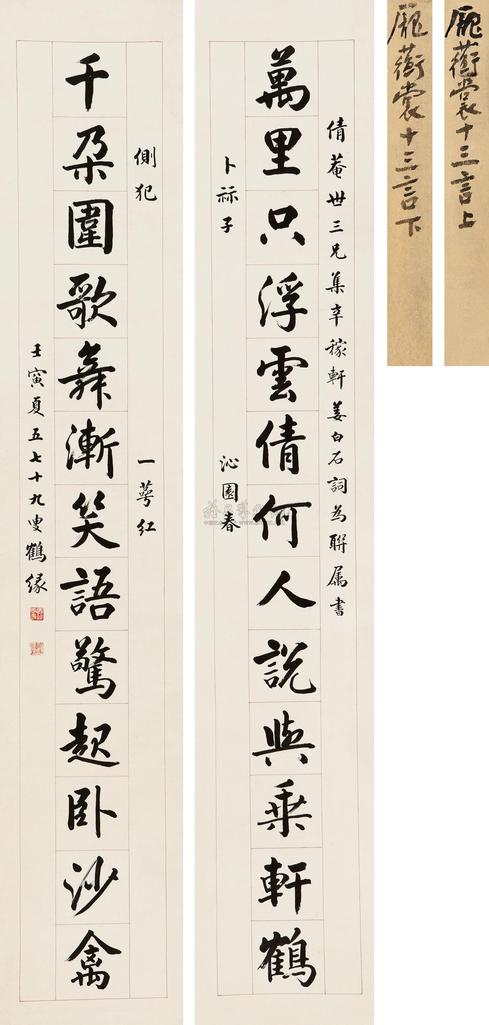 龐蘅裳十三言上
龐蘅裳十三言下
倩菴世三兄集辛稼軒姜白石詞為聯属書
萬里只浮雲倩何人說與乘軒鶴
卜祘子 沁園春
側犯 一萼紅
千朵圍歌舞漸笑語驚起卧沙禽
壬寅夏五七十九叟鶴緣